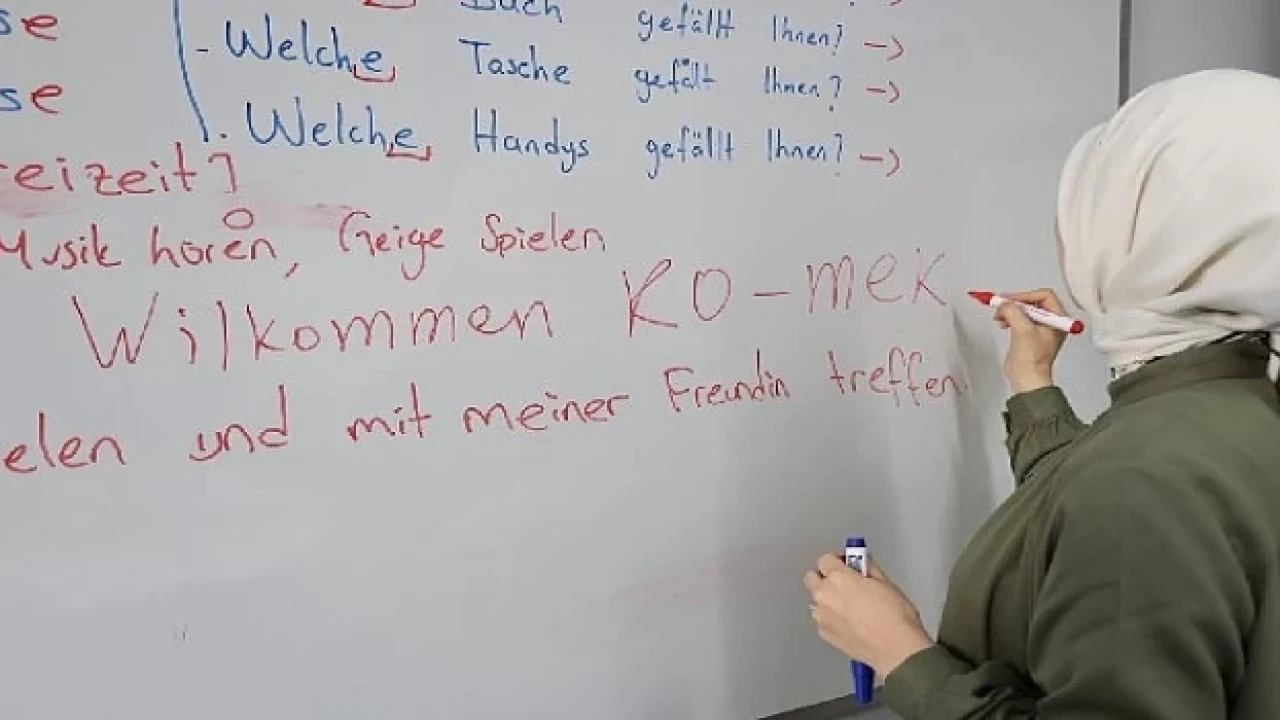 Buch gefällt Ihnen? →
se - Welche Tasche gefält Ihnen? →
se . Welche Handys gefällt Ihnen? →
eizeit]
Musik horen, Geige Spielen
Wilkommen KO-mek
elen und mit meiner Freundin treffen.